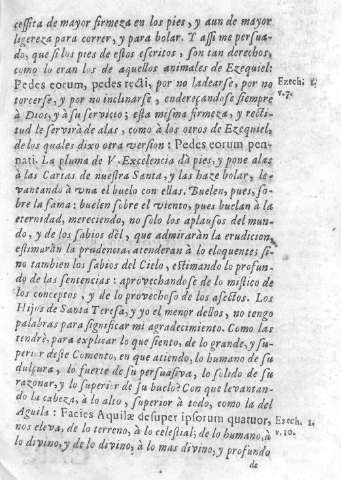 cessita de mayor firmeza en los pies, y aun de mayor
ligereza para correr, y para bolar. Y assi me persua-
do, que si los pies de estos escritos, son tan derechos,
como lo eran los de aquellos animales de Ezequiel:
Pedes eorum, pedes recti, por no ladearse, por no
Ezech. 1.
v.7.
torcerse, y por no inclinarse, endereçandose siempre
à Dios, y à su servicio; esta misma firmeza, y recti-
tud le servirà de alas, como à los otros de Ezequiel,
de los quales dixo otra version: Pedes eorum pen-
nati. La pluma de V. Excelencia dà pies, y pone alas
à las Cartas de nuestra Santa, y las haze bolar, le-
vantando à vna el buelo con ellas. Buelen, pues, so-
bre la fama: buelen sobre el viento, pues buelan à la
eternidad, mereciendo, no solo los aplausos del mun-
do, y de los sabios dèl, que admiraràn la erudicion,
estimaràn la prudencia, atenderàn à lo eloquente; si-
no tambien los sabios del Cielo, estimando lo profun-
do de las sentencias: aprovechandose de lo mistico de
los conceptos, y de lo provechoso de los afectos. Los
Hijos de Santa Teresa, y yo el menor dellos, no tengo
palabras para significar mi agradecimiento. Como las
tendrè, para explicar lo que siento, de lo grande, y su-
perior deste Comento, en que atiendo, lo humano de su
dulçura, lo fuerte de su persuasiva, lo solido de su
razonar, y lo superior de su buelo? Con que levantan-
do la cabeza, à lo alto, superior à todo, como la del
Aguila: Facies Aquilæ desuper ipsorum quatuor,
Ezech. 1.
v. 10.
nos eleva, de lo terreno, à lo celestial; de lo humano, à
lo divino, y de lo divino, à lo mas divino, y profundo
de